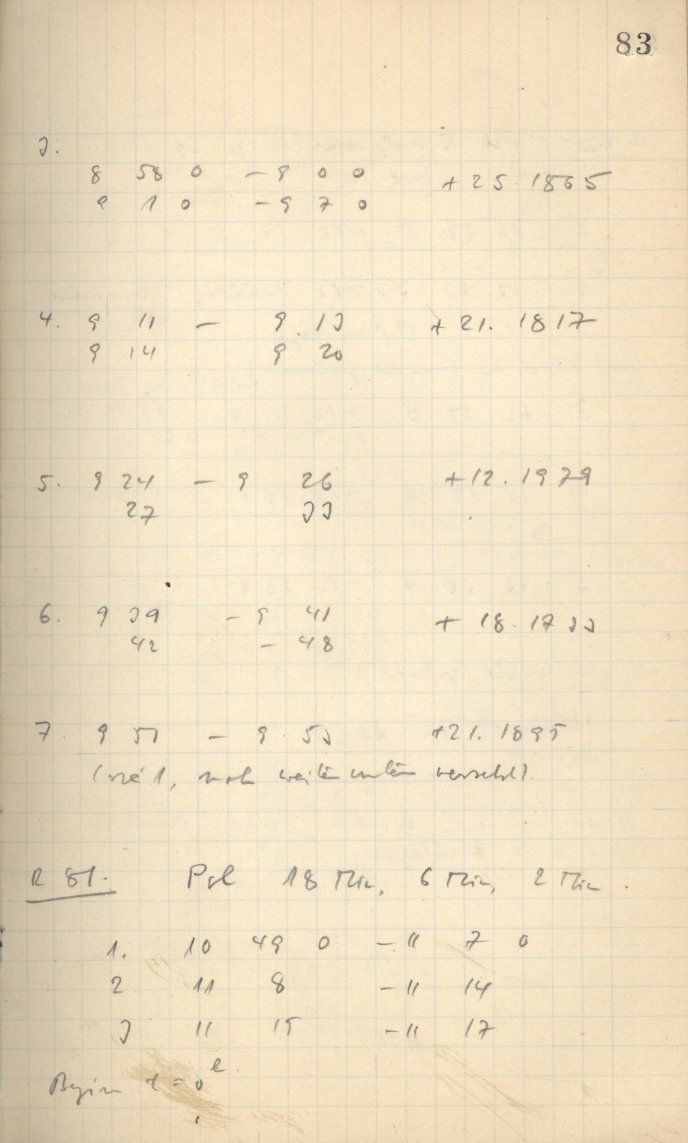 83
3.
8 58 0 – 9 0 0 + 25 1865
9 1 0 – 9 7 0
4. 9 11 – 9 13 + 21. 1817
9 14 9 20
5. 9 24 – 9 26 + 12. 1979
27 33
6. 9 39 – 9 41 + 18. 1733
42 – 48
7. 9 51 – 9 53 + 21. 1895
(wie 1, noch weiter unten
R 81. Pol 18 Min, 6 Min, 2 Min.
1. 10 49 0 – 11 7 0
2 11 8 – 11 14
3 11 15 – 11 17
Beginn t = 0